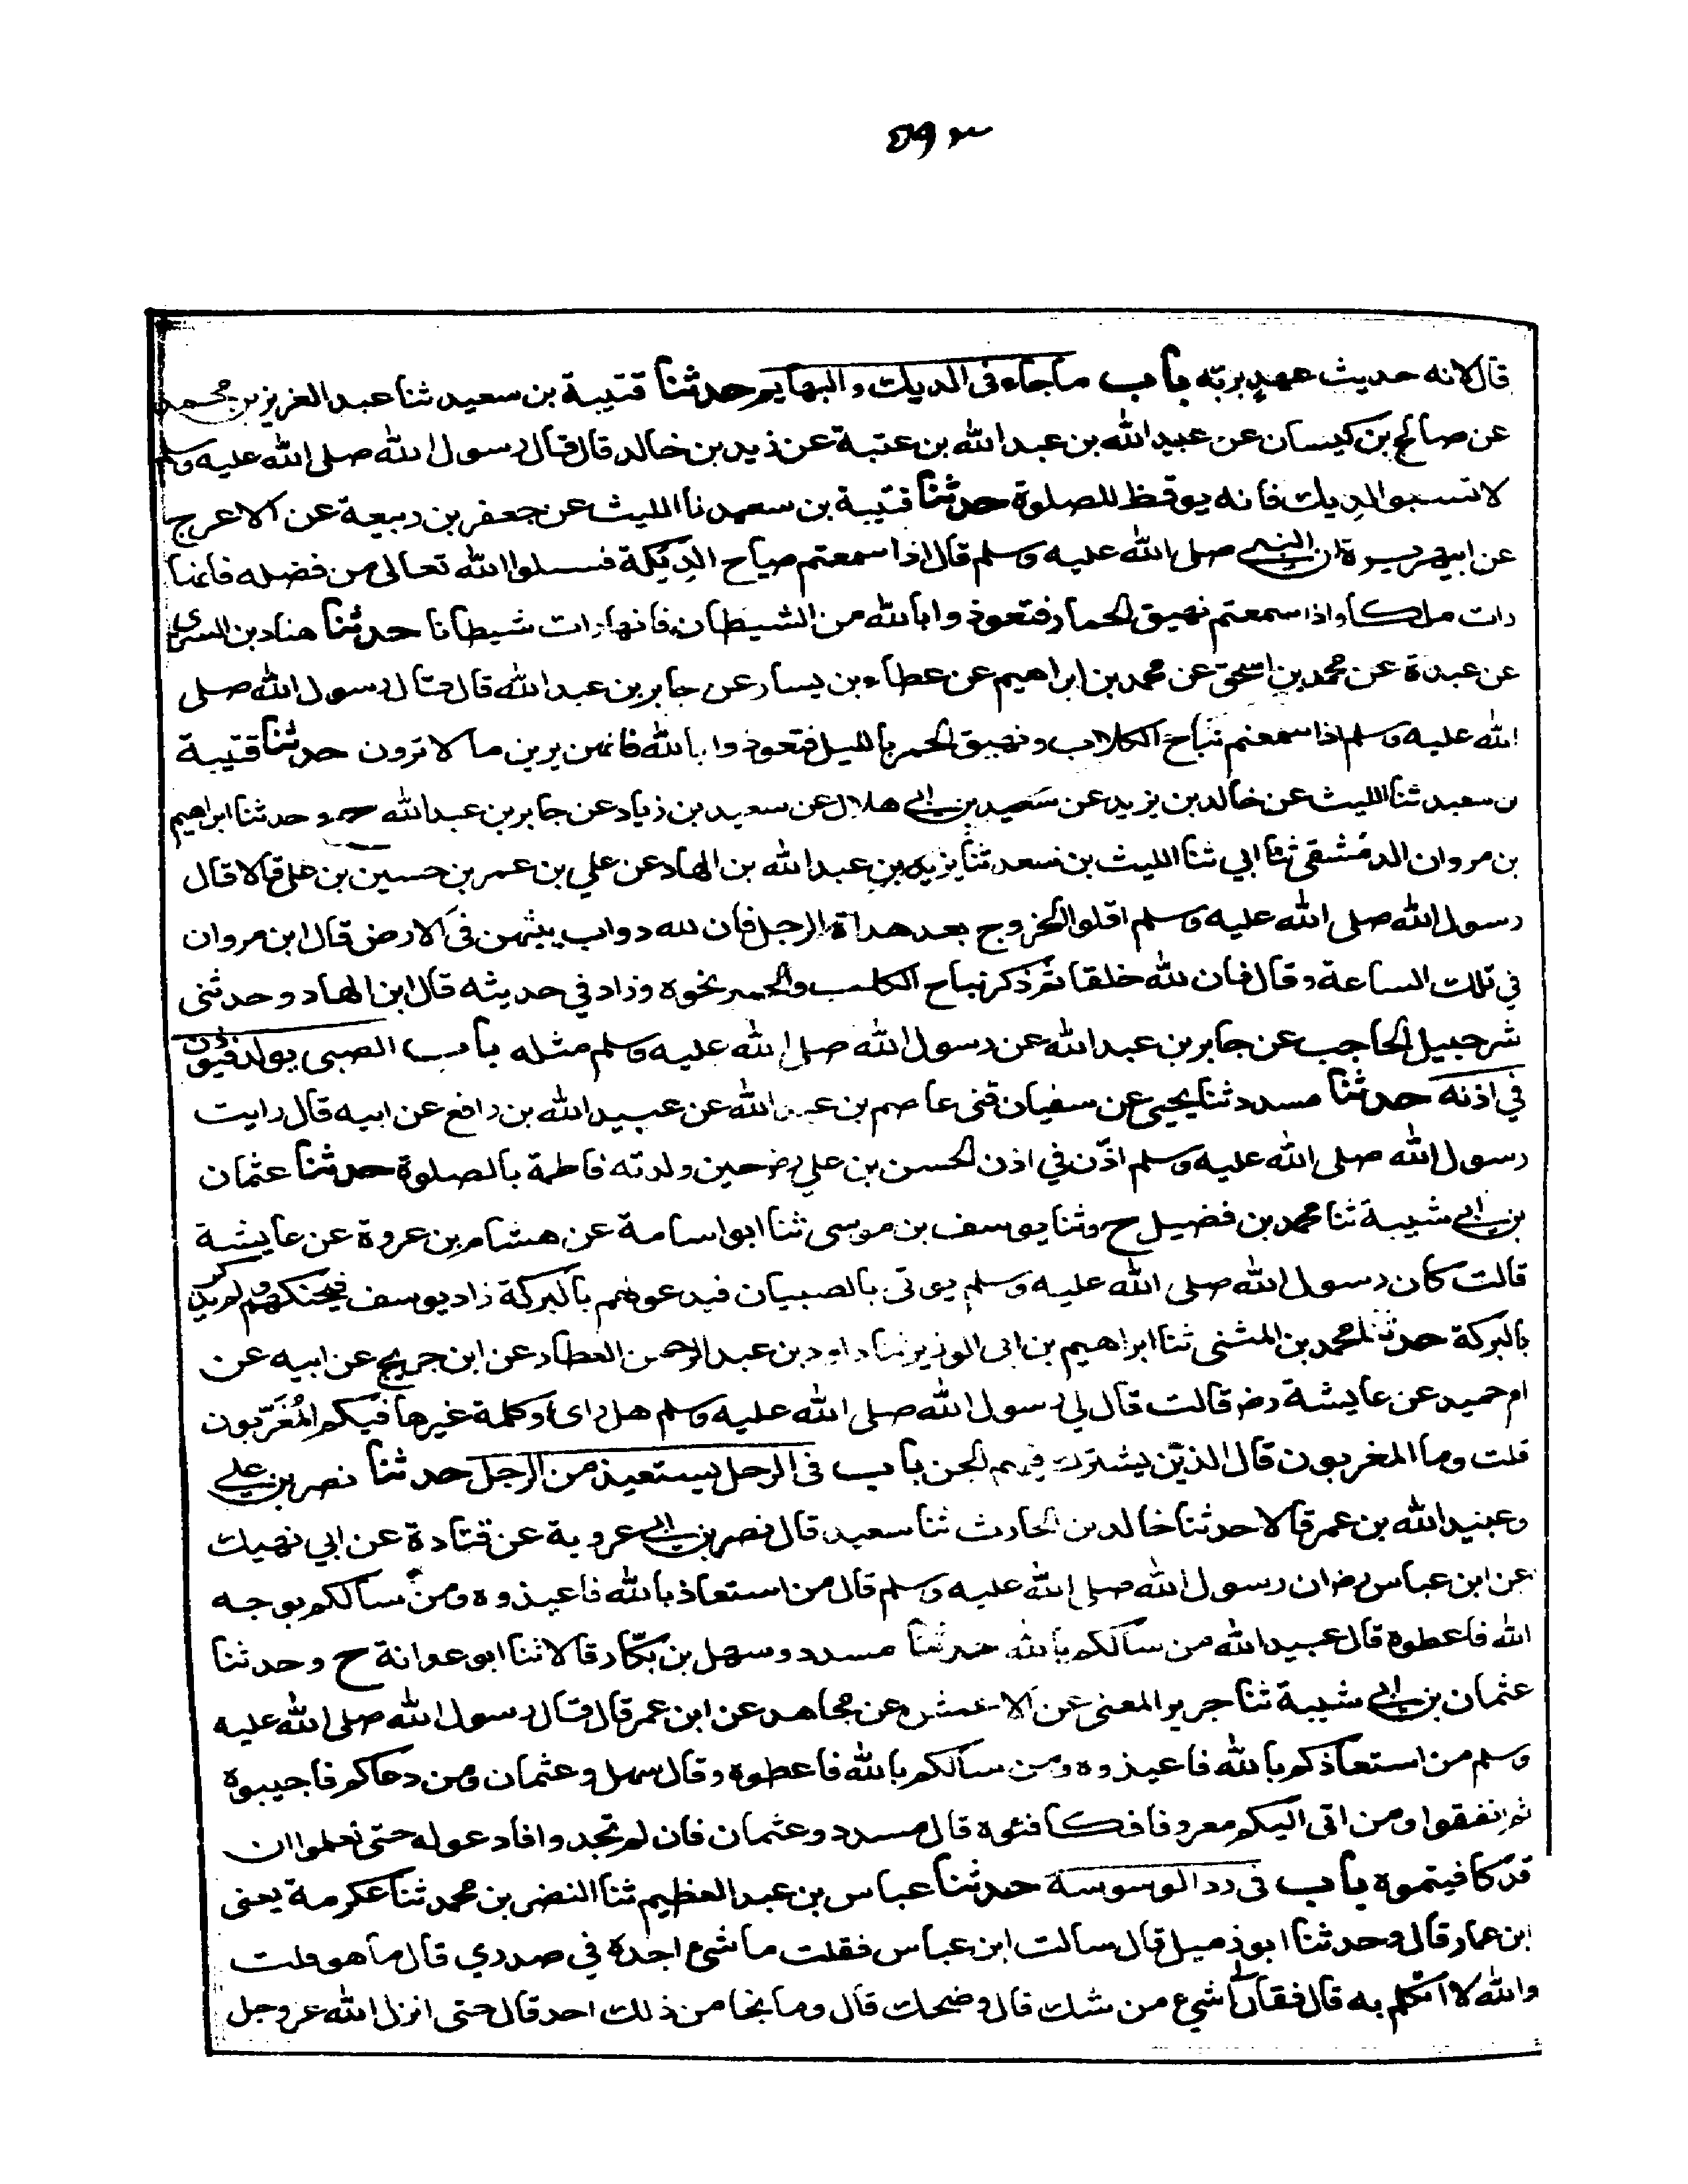 ٥٩٣
قال لانه حديث عهد بربه باب ما جاء فى الديك والبهايم حدثنا قتيبة بن سعيد ثنا عبد العزيز بن محمد
عن صالح بن كيسان عن عبيد الله بن عبد الله بن عتبة عن زيد بن خالد قال قال رسول الله صلى الله عليه وسلم
لا تسبوا الديك فانه يوقظ للصلوة حدثنا قتيبة بن سعيد نا الليث عن جعفر بن ربيعة عن الاعرج
عن ابي هريرة ان النبي صلى الله عليه وسلم قال اذا سمعتم صياح الديكة فسلوا الله تعالى من فضله فانها
رات ملكا واذا سمعتم نهيق الحمار فتعوذوا بالله من الشيطان فانها رات شيطانا حدثنا هناد بن السرى
عن عبدة عن محمد بن اسحق عن محمد بن ابراهيم عن عطاء بن يسار عن جابر بن عبد الله قال قال رسول الله صلى
الله عليه وسلم اذا سمعتم نباح الكلاب ونهيق الحمر بالليل فتعوذوا بالله فانهن يرين ما لا ترون حدثنا قتيبة
بن سعيد ثنا الليث عن خالد بن يزيد عن سعيد بن ابي هلال عن سعيد بن زياد عن جابر بن عبد الله ح وحدثنا ابراهيم
بن مروان الدمشقى ثنا ابي ثنا الليث بن سعد ثنا يزيد بن عبد الله بن الهاد عن علي بن عمر بن حسين بن على قالا قال
رسول الله صلى الله عليه وسلم اقلوا الخروج بعد هداة الرجل فان لله دواب يبثهن فى الارض قال ابن مروان
في تلك الساعة وقال فان لله خلقا ثم ذكر نباح الكلب والحمير نحوه وزاد في حديثه قال ابن الهاد وحدثنى
شرحبيل الحاجب عن جابر بن عبد الله عن رسول الله صلى الله عليه وسلم مثله باب الصبى يولد فيؤذن
في اذنه حدثنا مسدد ثنا يحيى عن سفيان قثنى عاصم بن عبيد الله عن عبيد الله بن رافع عن ابيه قال رايت
رسول الله صلى الله عليه وسلم اذّن في اذن الحسن بن علي رض حين ولدته فاطمة بالصلوة حدثنا عثمان
بن ابي شيبة ثنا محمد بن فضيل ح وثنا يوسف بن موسى ثنا ابو اسامة عن هشام بن عروة عن عايشة
قالت كان رسول الله صلى الله عليه وسلم يوتى بالصبيان فيدعو لهم بالبركة زاد يوسف فيحنكهم ولم يذكر
بالبركة حدثنا محمد بن المثنى ثنا ابراهيم بن ابى الوزير ثنا داود بن عبد الرحمن العطار عن ابن جريج عن ابيه عن
ام حميد عن عايشة رض قالت قال لي رسول الله صلى الله عليه وسلم هل راى او كلمة غيرها فيكم المُغَرّبون
قلت وما المغربون قال الذين يشترك فيهم الجن باب فى الرجل يستعيذ من الرجل حدثنا نصر بن علي
وعبيد الله بن عمر قالا حدثنا خالد بن الحارث ثنا سعيد قال نصر بن ابي عروبة عن قتادة عن ابي نهيك
عن ابن عباس رض ان رسول الله صلى الله عليه وسلم قال من استعاذ بالله فاعيذوه ومن سألكم بوجه
الله فاعطوه قال عبيد الله من سألكم بالله حدثنا مسدد وسهل بن بكّار قالا ثنا ابو عوانة ح وحدثنا
عثمان بن ابي شيبة ثنا جرير المعنى عن الاعمش عن مجاهد عن ابن عمر قال قال رسول الله صلى الله عليه
وسلم من استعاذكم بالله فاعيذوه ومن سألكم بالله فاعطوه وقال سهل وعثمان ومن دعاكم فاجيبوه
ثم اتفقوا ومن اتى اليكم معروفا فكافئوه قال مسدد وعثمان فان لم تجدوا فادعوا له حتى تعلموا ان
قد كافيتموه باب فى رد الوسوسة حدثنا عباس بن عبد العظيم ثنا النضر بن محمد ثنا عكرمة يعنى
ابن عمار قال وحدثنا ابو زميل قال سالت ابن عباس فقلت ما شيء اجده في صدري قال ما هو قلت
والله لا اتكلم به قال فقال لى اشيء من شك قال وضحك قال وما نجا من ذلك احد قال حتى انزل الله عز وجل